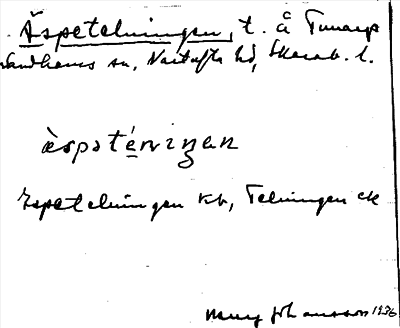 Äspetelningen, t. å Tunarps
Sandhems sn, Vartofta hd, Skarab. l.
æspətéṇviŋan
Espetelningen kb, Telningen ek
Johansson 1936